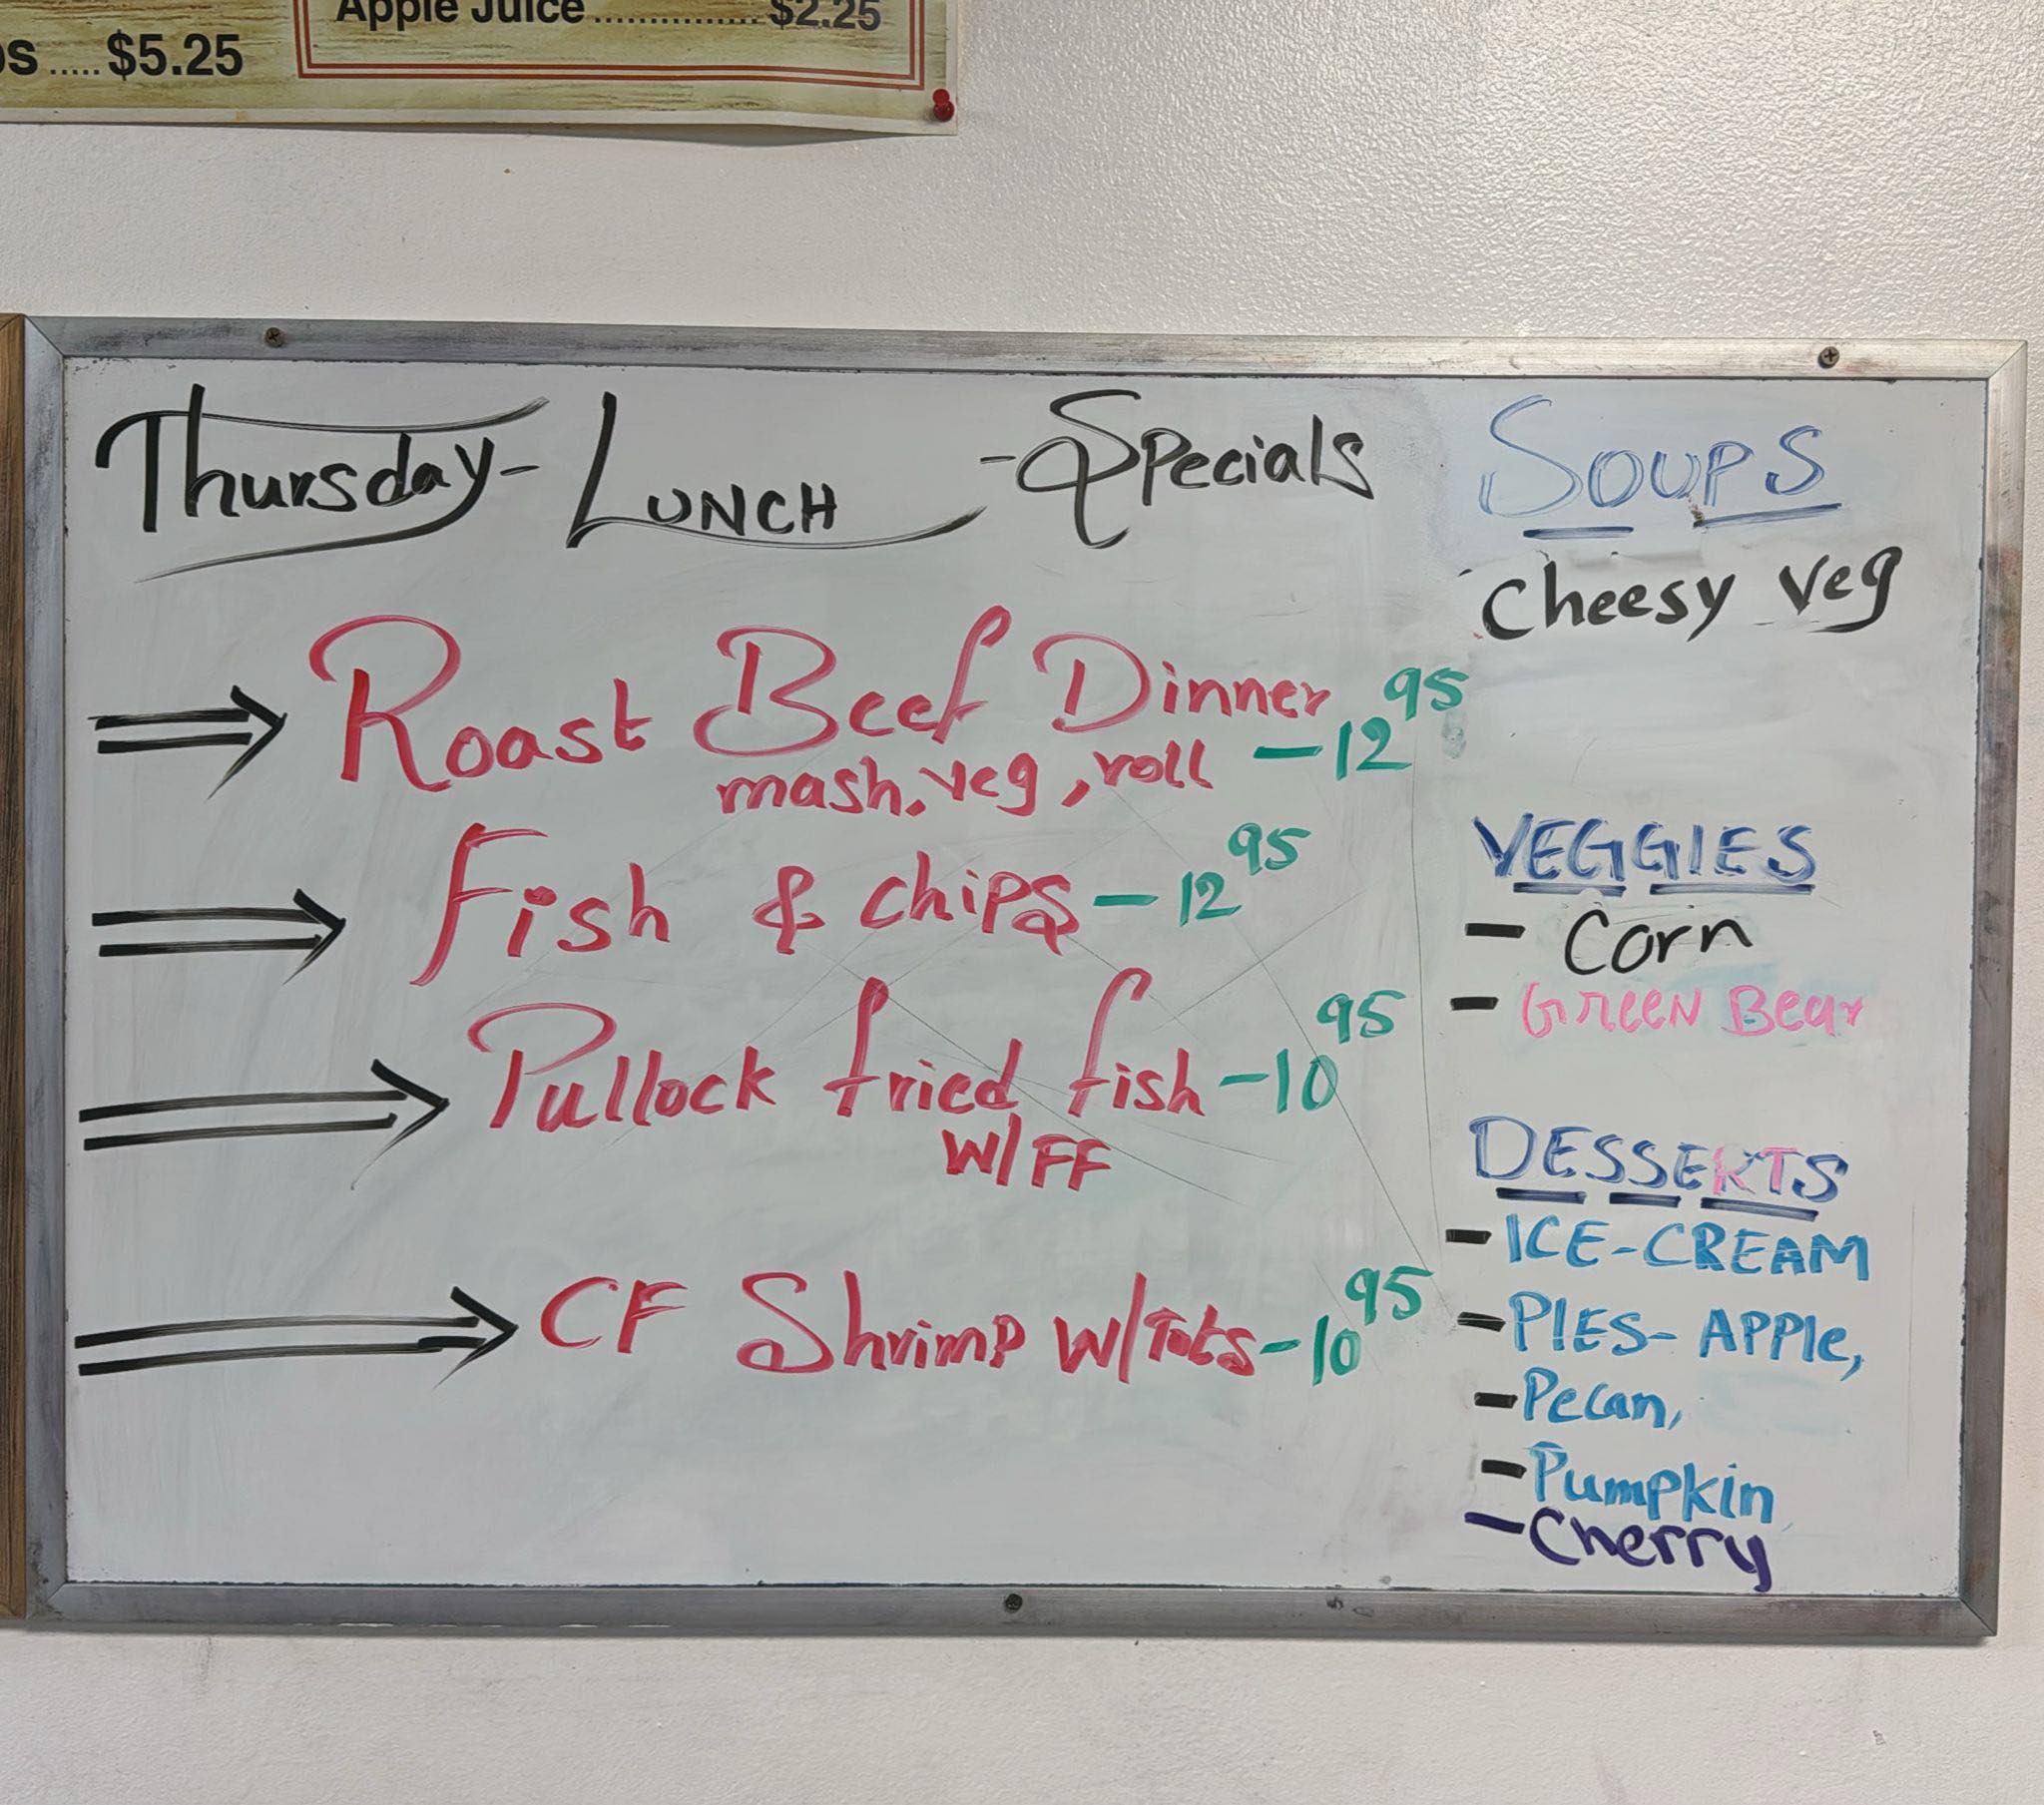 Apple Juice ................ $2.25
..... $5.25
Thursday- LUNCH -Specials
Roast Beef Dinner
mash, veg, roll -12 95
Fish & chips - 12 95
Pullock fried fish -10 95
W/ FF
CF Shrimp w/Tots-10 95
SOUPS
Cheesy Veg
VEGGIES
- Corn
- GREEN Bean
DESSERTS
- ICE-CREAM
- PIES- APPle,
- Pecan,
- Pumpkin
- Cherry